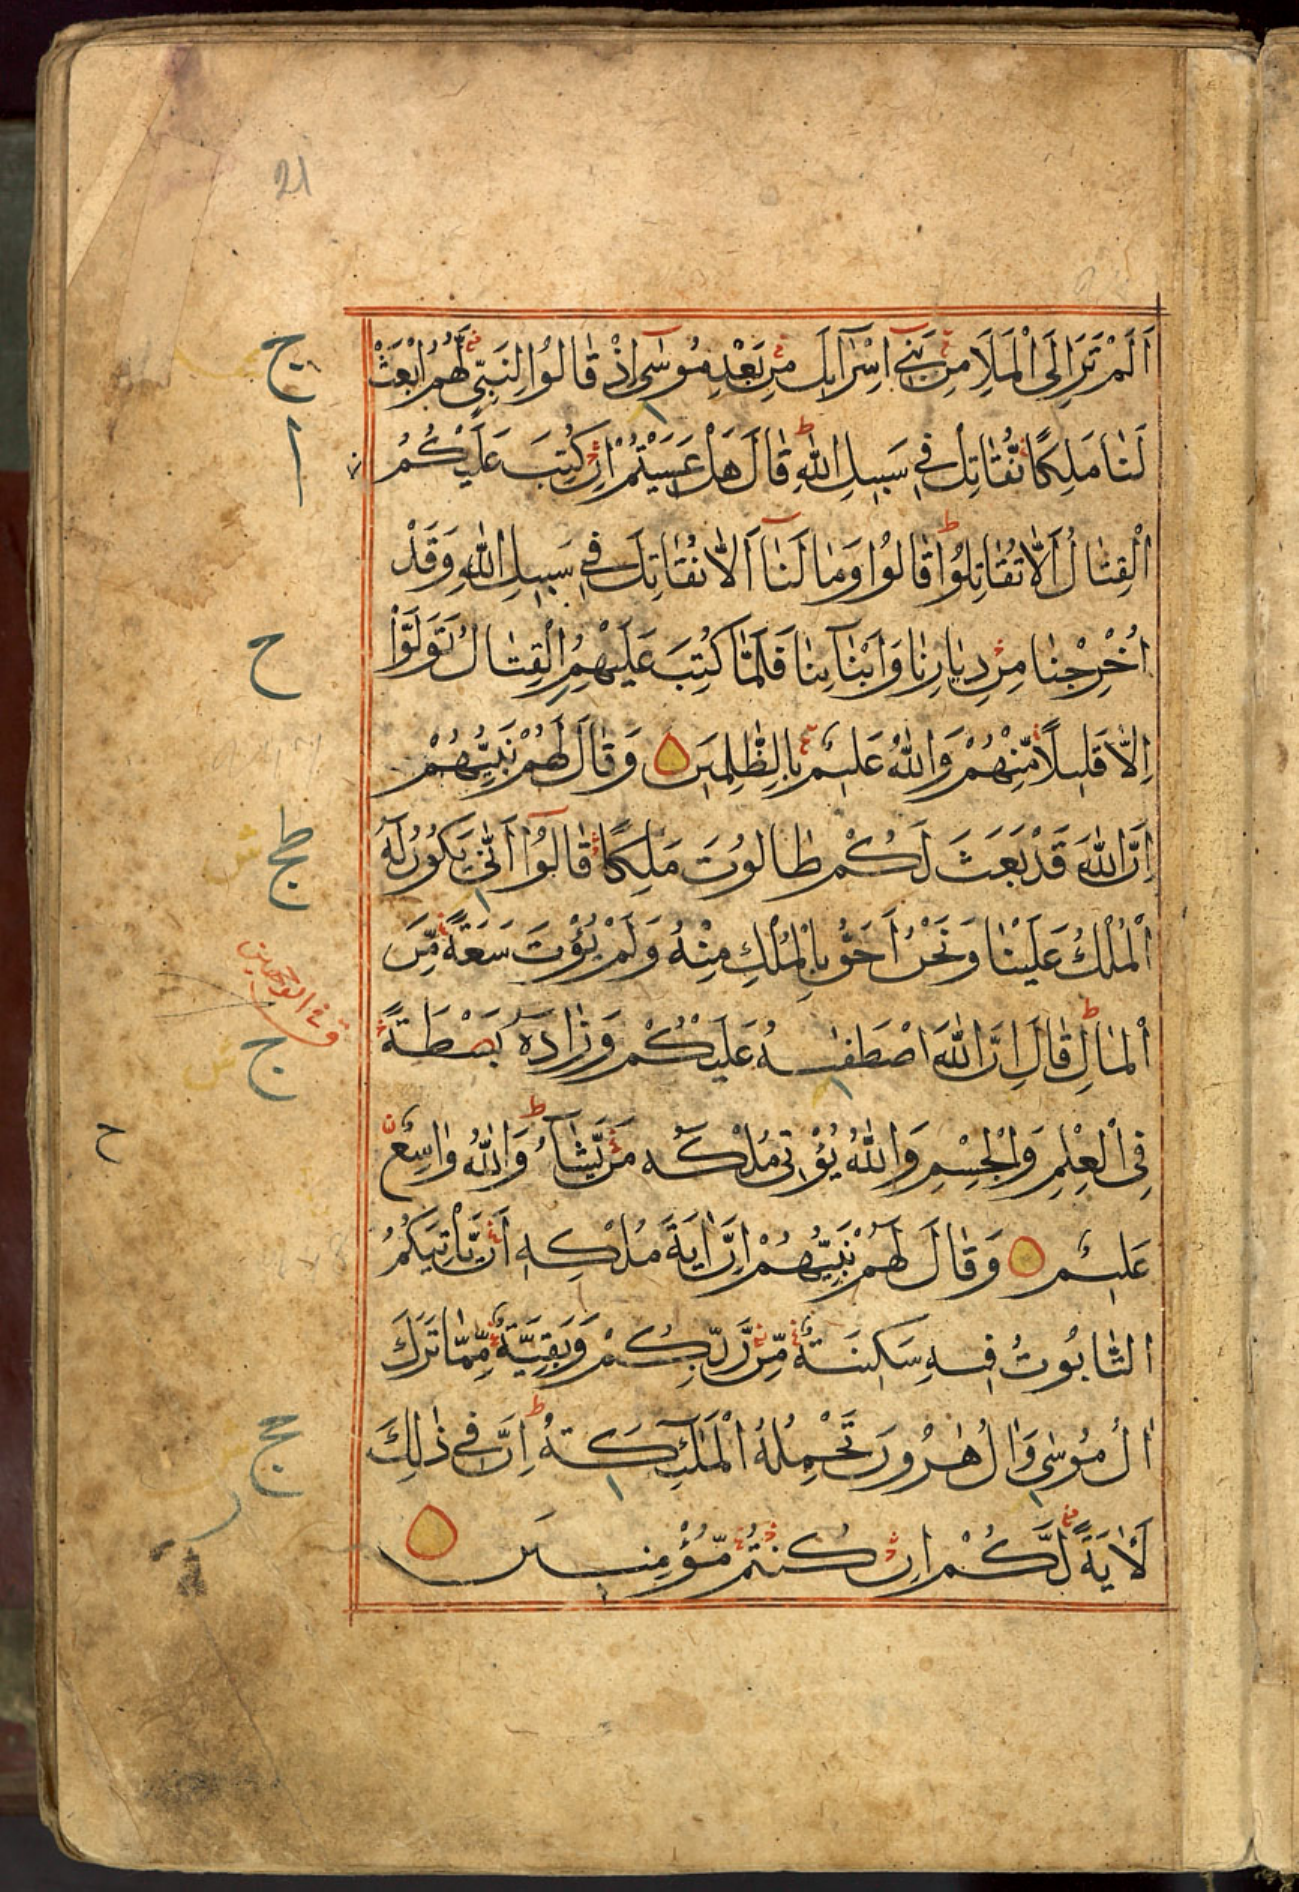 21
اَلَمْ تَرَ اِلَى الْمَلَاِ مِنْ بَنِيْٓ اِسْرَآءِيلَ مِنْ بَعْدِ مُوْسٰٓى اِذْ قَالُوْا لِنَبِيٍّ لَّهُمُ ابْعَثْ
لَنَا مَلِكًا نُّقَاتِلْ فِيْ سَبِيلِ اللّٰهِ قَالَ هَلْ عَسَيْتُمْ اِنْ كُتِبَ عَلَيْكُمُ
الْقِتَالُ اَلَّا تُقَاتِلُوْا قَالُوْا وَمَا لَنَآ اَلَّا نُقَاتِلَ فِيْ سَبِيلِ اللّٰهِ وَقَدْ
اُخْرِجْنَا مِنْ دِيَارِنَا وَاَبْنَآىِٕنَا فَلَمَّا كُتِبَ عَلَيْهِمُ الْقِتَالُ تَوَلَّوْا
اِلَّا قَلِيلًا مِّنْهُمْ وَاللّٰهُ عَلِيمٌ بِالظّٰلِمِينَ وَقَالَ لَهُمْ نَبِيُّهُمْ
اِنَّ اللّٰهَ قَدْ بَعَثَ لَكُمْ طَالُوْتَ مَلِكًا قَالُوْٓا اَنّٰى يَكُوْنُ لَهُ
الْمُلْكُ عَلَيْنَا وَنَحْنُ اَحَقُّ بِالْمُلْكِ مِنْهُ وَلَمْ يُؤْتَ سَعَةً مِّنَ
الْمَالِ قَالَ اِنَّ اللّٰهَ اصْطَفٰىهُ عَلَيْكُمْ وَزَادَهُ بَصْطَةً
فِى الْعِلْمِ وَالْجِسْمِ وَاللّٰهُ يُؤْتِيْ مُلْكَهُ مَنْ يَّشَآءُ وَاللّٰهُ وَاسِعٌ
عَلِيمٌ وَقَالَ لَهُمْ نَبِيُّهُمْ اِنَّ اٰيَةَ مُلْكِهٖ اَنْ يَّاْتِيَكُمُ
التَّابُوْتُ فِيهِ سَكِينَةٌ مِّنْ رَّبِّكُمْ وَبَقِيَّةٌ مِّمَّا تَرَكَ
اٰلُ مُوْسٰى وَاٰلُ هٰرُوْنَ تَحْمِلُهُ الْمَلٰٓىِٕكَةُ اِنَّ فِيْ ذٰلِكَ
لَاٰيَةً لَّكُمْ اِنْ كُنْتُمْ مُّؤْمِنِينَ